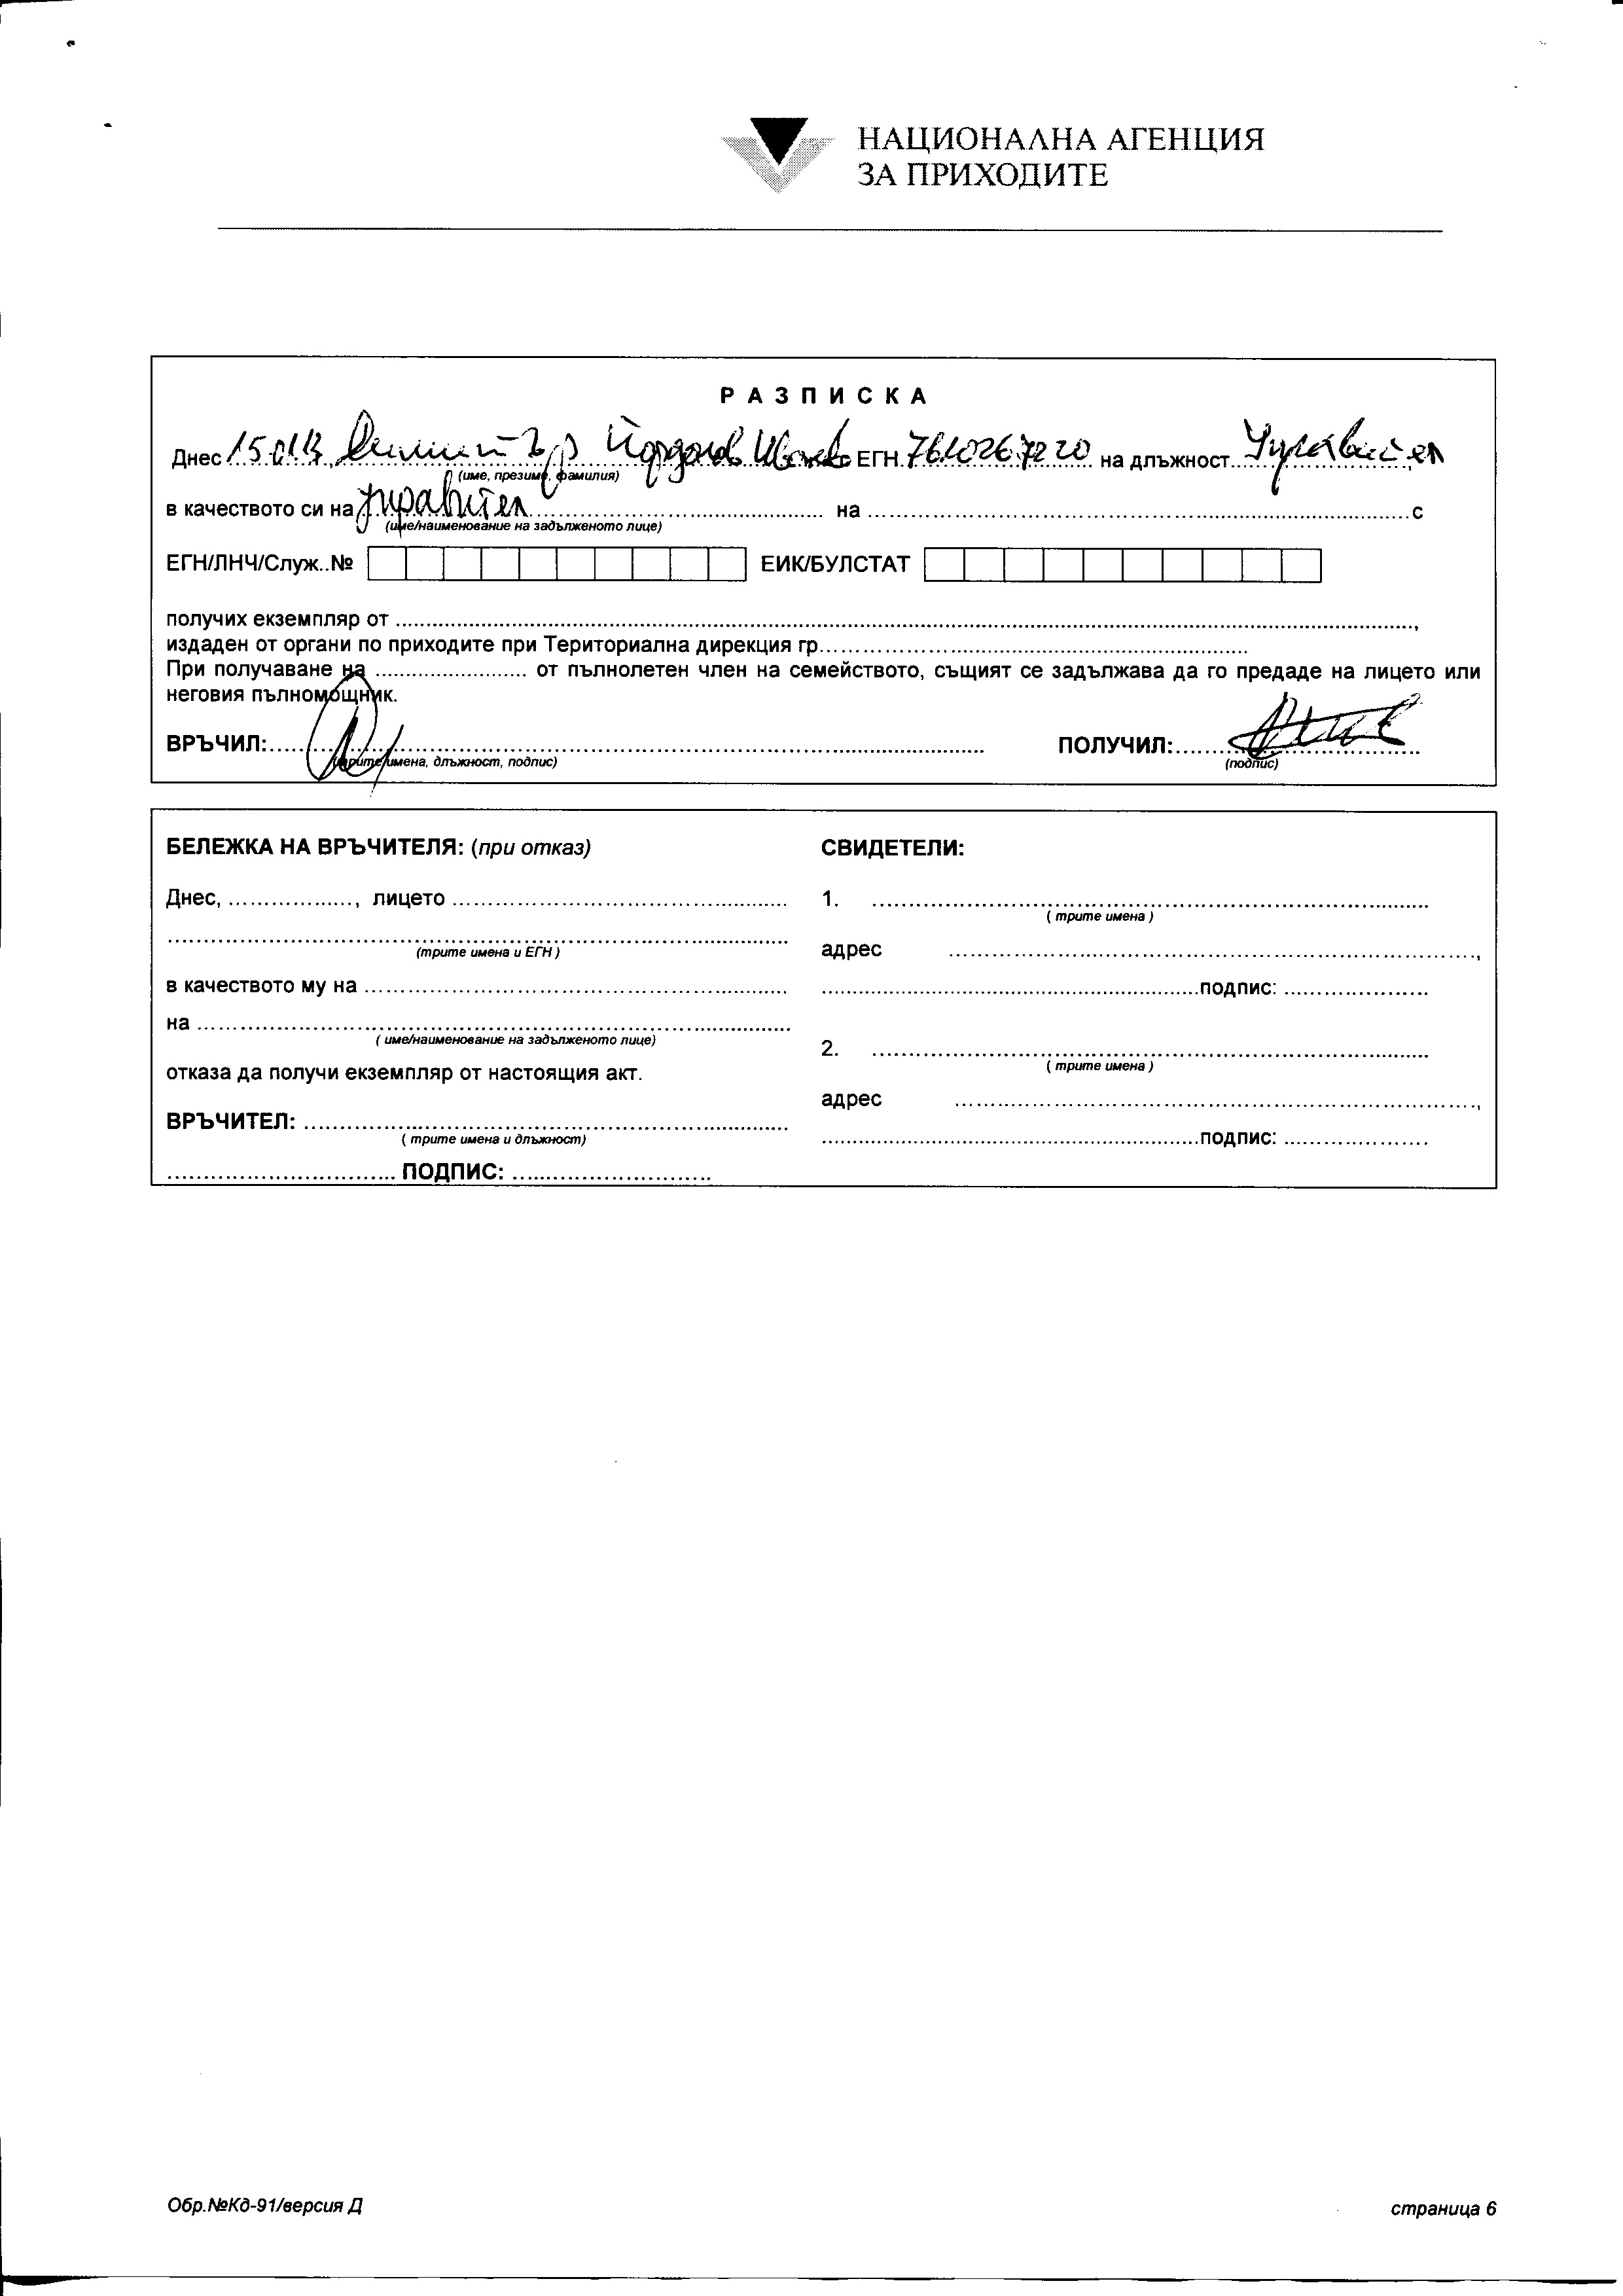 НАЦИОНАЛНА АГЕНЦИЯ
ЗА ПРИХОДИТЕ
Р А З П И С К А
Днес 15.01.13, Димитър Йорданов Иванов ЕГН 7610267220 на длъжност Управител
(име, презиме, фамилия)
в качеството си на управител на с
(име/наименование на задълженото лице)
ЕГН/ЛНЧ/Служ..№ ЕИК/БУЛСТАТ
получих екземпляр от ,
издаден от органи по приходите при Териториална дирекция гр.
При получаване на от пълнолетен член на семейството, същият се задължава да го предаде на лицето или
неговия пълномощник.
ВРЪЧИЛ: ПОЛУЧИЛ:
(трите имена, длъжност, подпис) (подпис)
БЕЛЕЖКА НА ВРЪЧИТЕЛЯ: (при отказ)
Днес, , лицето
(трите имена и ЕГН )
в качеството му на
на
( име/наименование на задълженото лице)
отказа да получи екземпляр от настоящия акт.
ВРЪЧИТЕЛ:
( трите имена и длъжност)
ПОДПИС:
СВИДЕТЕЛИ:
1.
( трите имена )
адрес ,
подпис:
2.
( трите имена )
адрес ,
подпис:
Обр.№Кд-91/версия Д страница 6